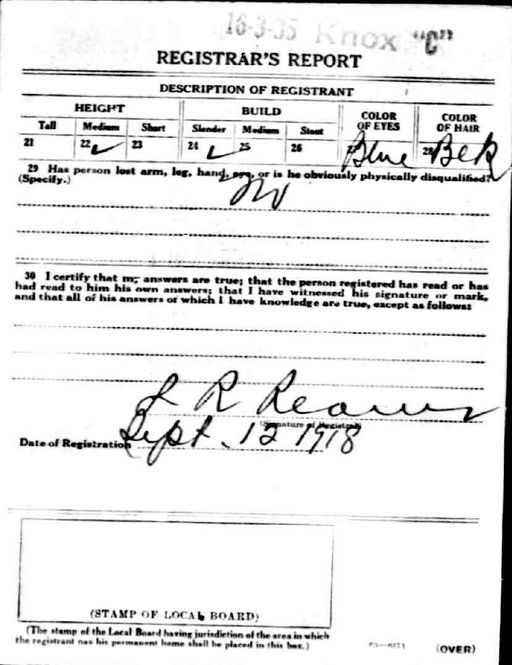 16-3-35 Knox "C"
REGISTRAR'S REPORT
DESCRIPTION OF REGISTRANT
HEIGHT BUILD COLOR OF EYES COLOR OF HAIR
Tall Medium Short Slender Medium Stout
21 22 ✓ 23 24 ✓ 25 26 Blue 28 Blk
29 Has person lost arm, leg, hand, eye, or is he obviously physically disqualified?
(Specify.) No
30 I certify that my answers are true; that the person registered has read or has
had read to him his own answers; that I have witnessed his signature or mark,
and that all of his answers of which I have knowledge are true, except as follows:
L R
(Signature of Registrar)
Date of Registration Sept. 12 1918
(STAMP OF LOCAL BOARD)
(The stamp of the Local Board having jurisdiction of the area in which
the registrant has his permanent home shall be placed in this box.)
(OVER)